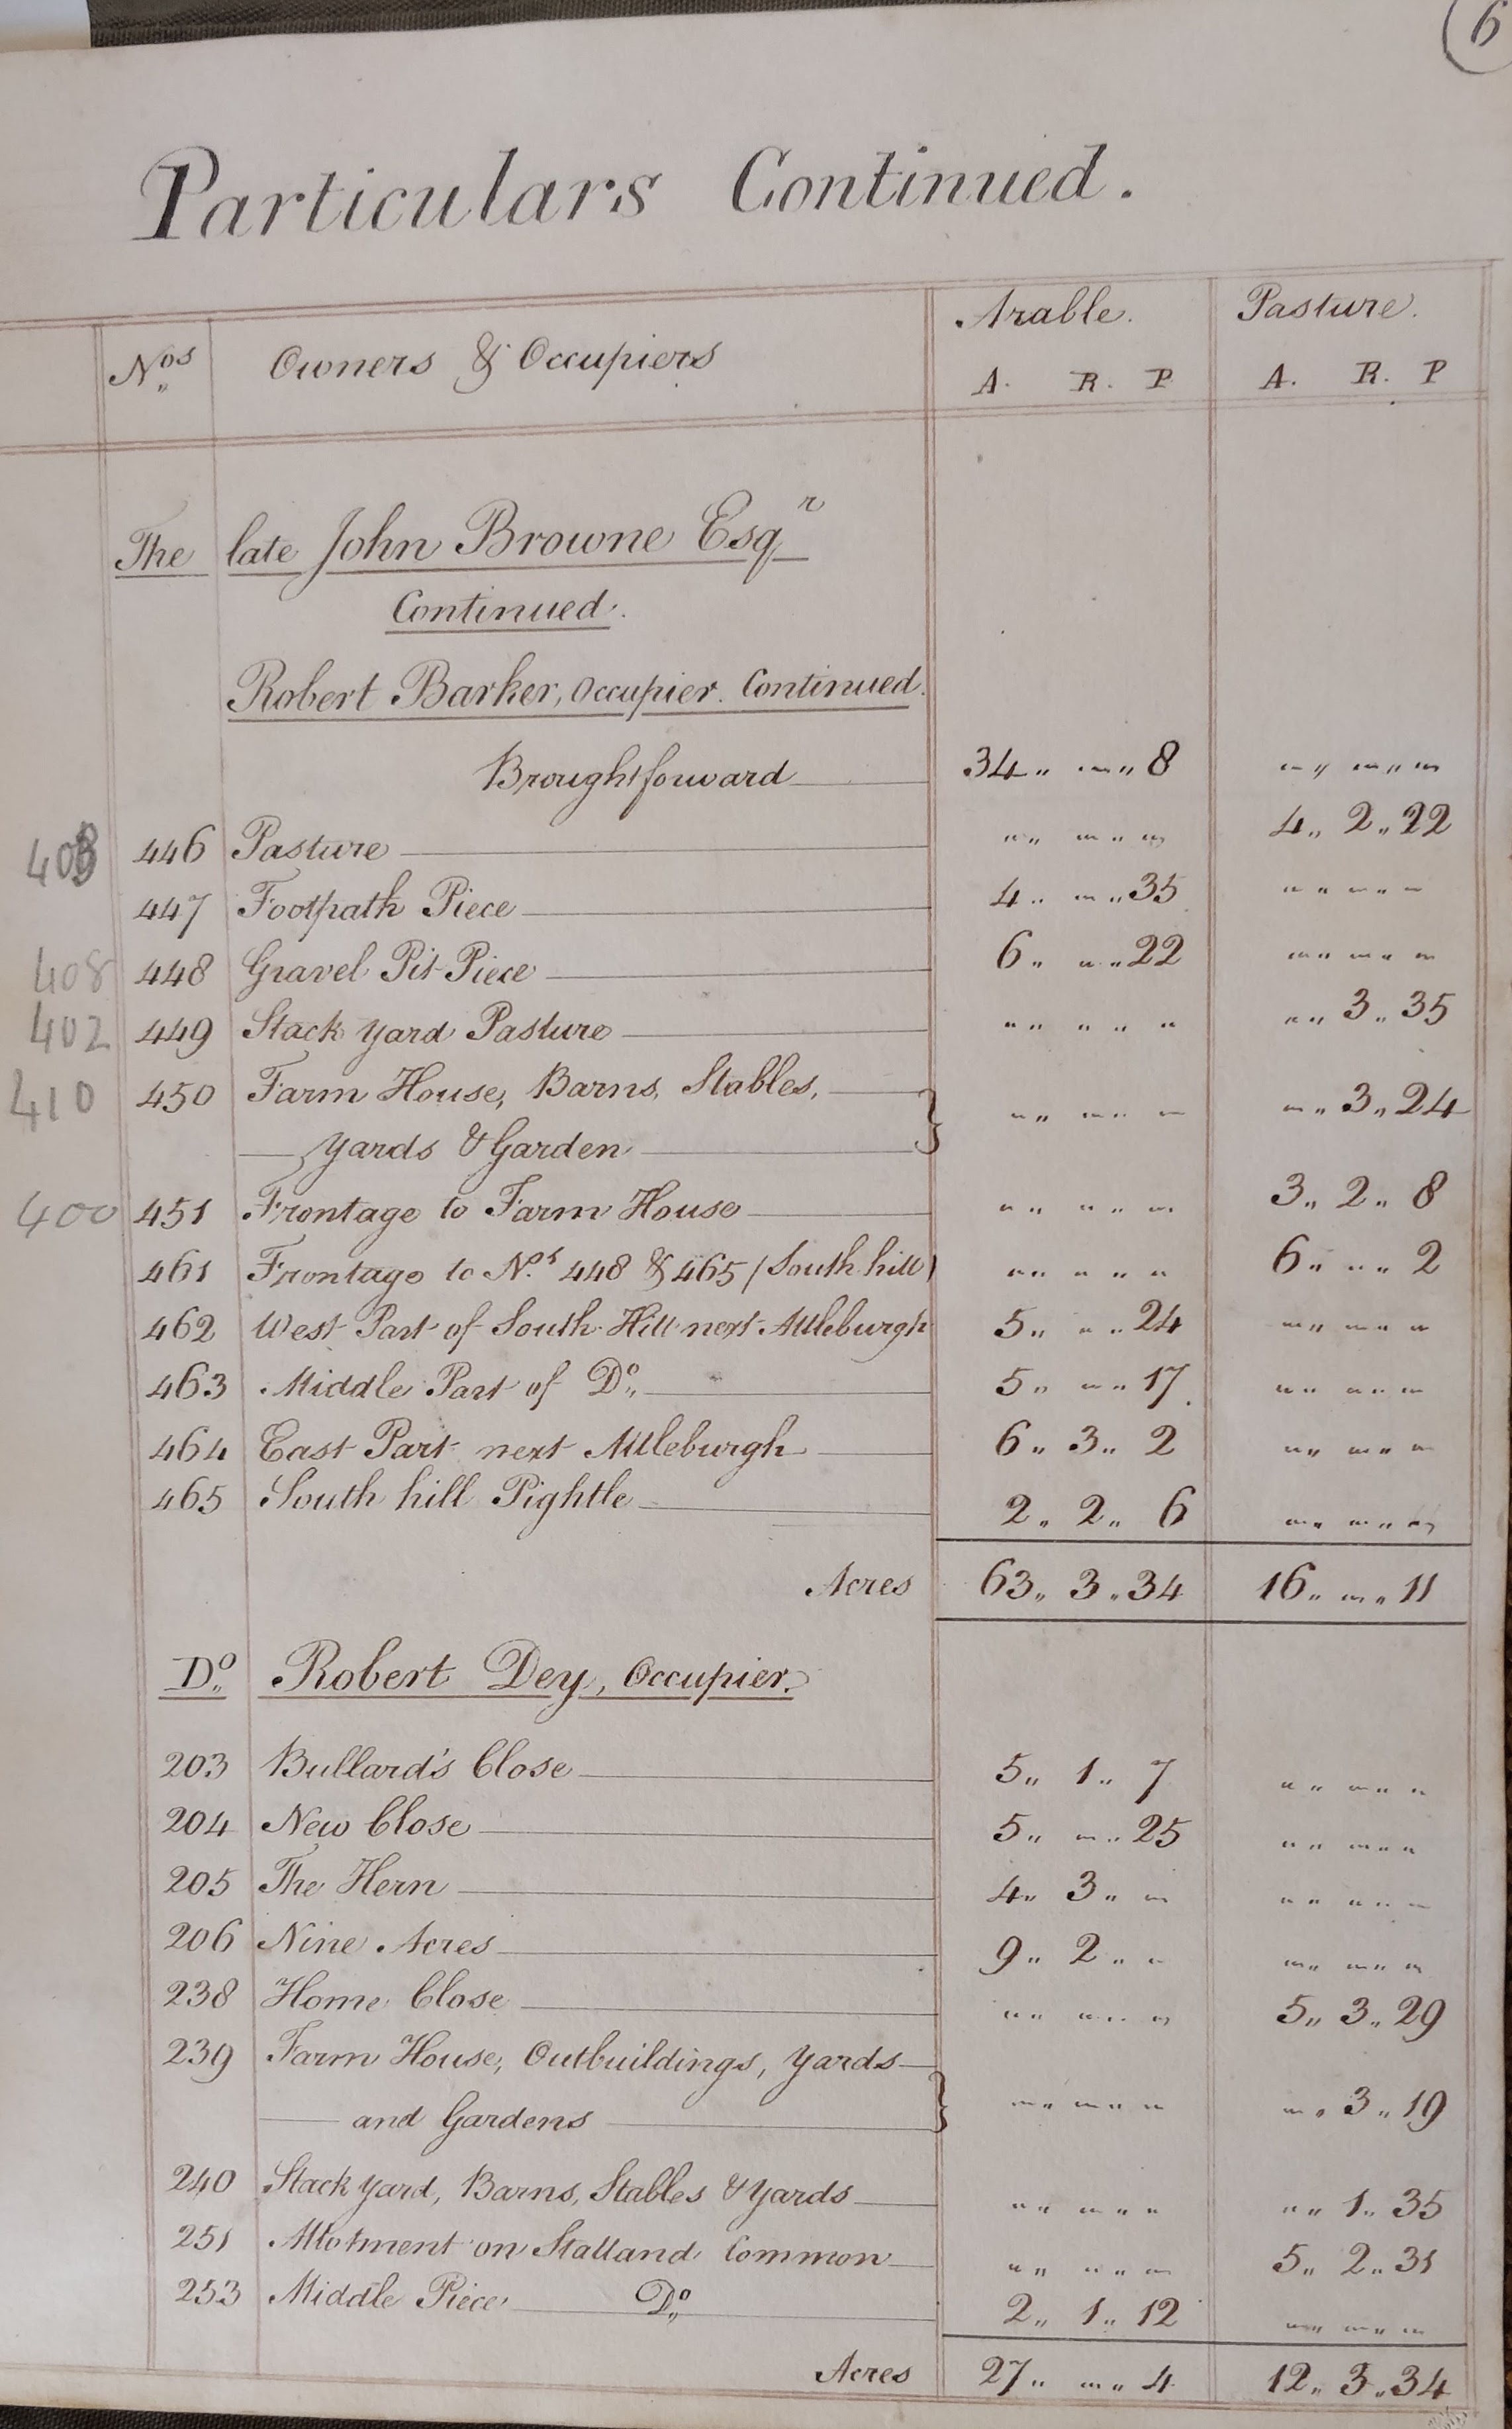 6
Particulars Continued.
Arable. Pasture.
Nos Owners & Occupiers A. R. P A. R. P
The late John Browne Esqr
Continued.
Robert Barker, Occupier. Continued.
Brought forward 34 " " " 8 " " " " "
446 Pasture " " " " " 4 " 2 " 22
447 Footpath Piece 4 " " " 35 " " " " "
408 448 Gravel Pit Piece 6 " " " 22 " " " " "
402 449 Stack Yard Pasture " " " " " " " 3 " 35
410 450 Farm House, Barns, Stables, " " " " " " " 3 " 24
Yards & Garden
400 451 Frontage to Farm House " " " " " 3 " 2 " 8
461 Frontage to Nos 448 & 465 (South hill) " " " " " 6 " " " 2
462 West Part of South Hill next Attleburgh 5 " " " 24 " " " " "
463 Middle Part of Do 5 " " " 17 " " " " "
464 East Part next Attleburgh 6 " 3 " 2 " " " " "
465 South hill Pightle 2 " 2 " 6 " " " " "
Acres 63 " 3 " 34 16 " " " 11
Do Robert Dey, Occupier.
203 Bullard's Close 5 " 1 " 7 " " " " "
204 New Close 5 " " " 25 " " " " "
205 The Hern 4 " 3 " " " " " " "
206 Nine Acres 9 " 2 " " " " " " "
238 Home Close " " " " " 5 " 3 " 29
239 Farm House, Outbuildings, Yards
and Gardens " " " " " " " 3 " 19
240 Stack Yard, Barns, Stables & Yards " " " " " " " 1 " 35
251 Allotment on Stalland Common " " " " " 5 " 2 " 31
253 Middle Piece Do 2 " 1 " 12 " " " " "
Acres 27 " " " 4 12 " 3 " 34